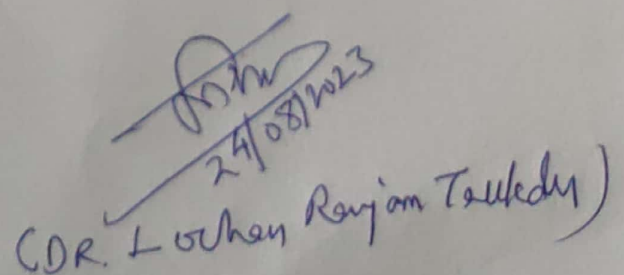 24/08/2023
(DR. Lochan Ranjan Talukdar)